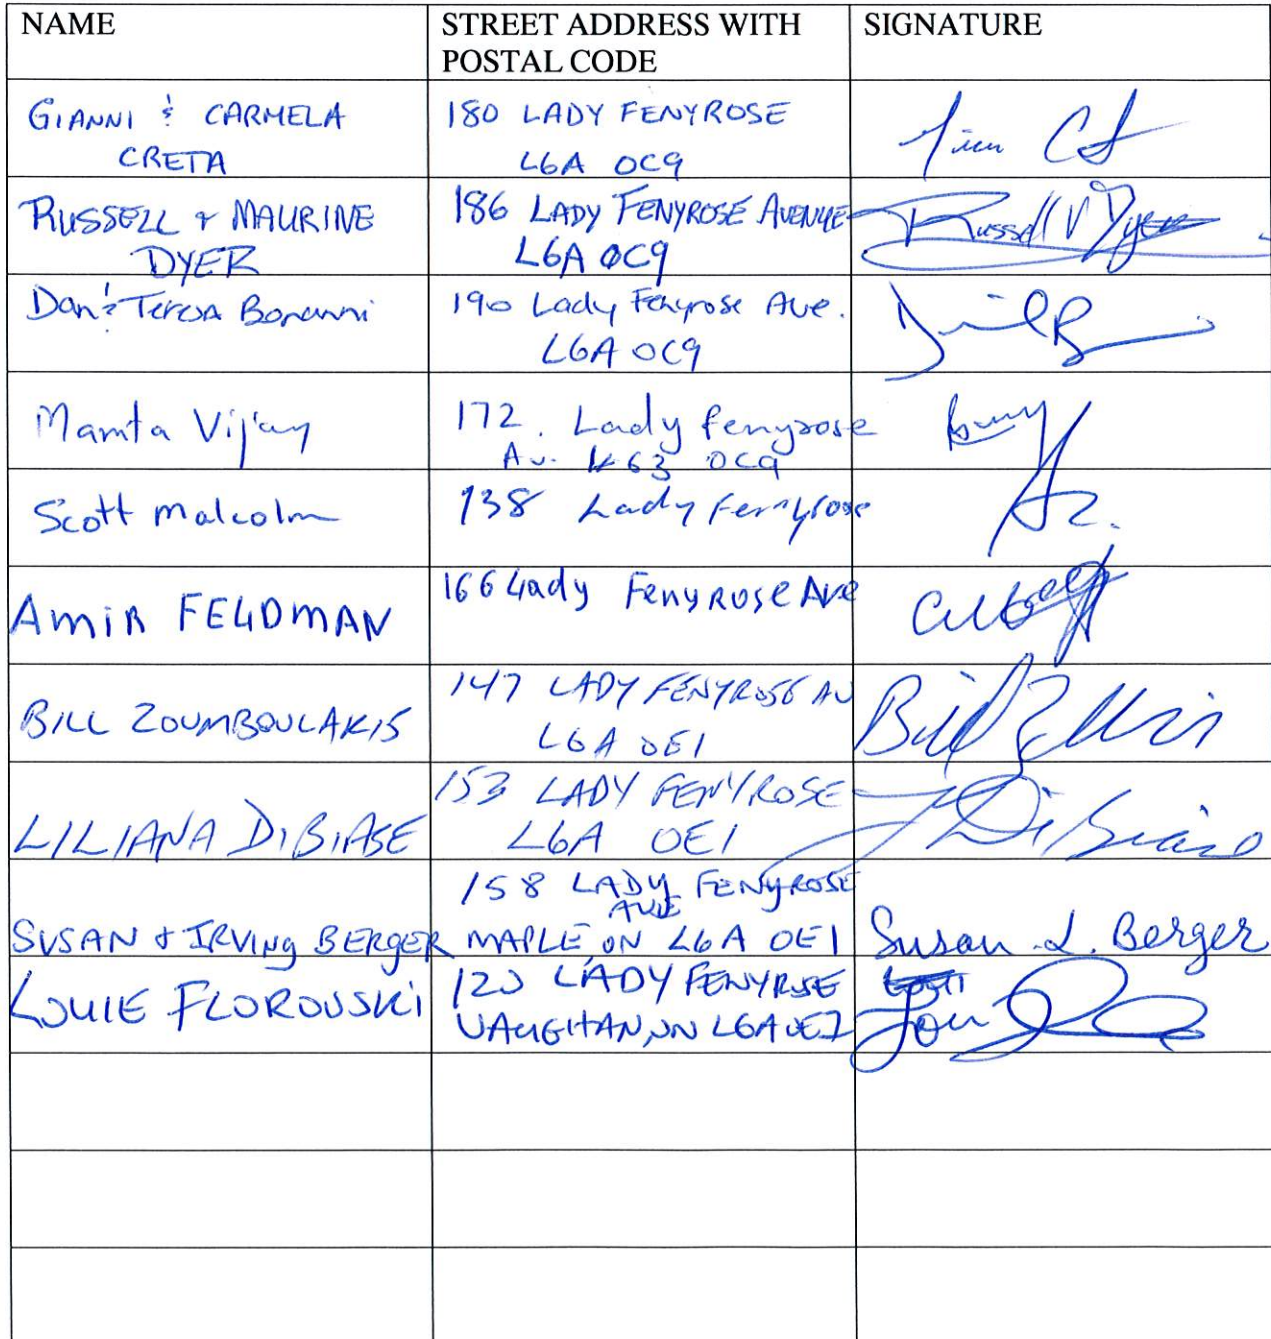 NAME
STREET ADDRESS WITH
POSTAL CODE
SIGNATURE
GIANNI & CARMELA
CRETA
180 LADY FENYROSE
L6A 0C9
RUSSELL + MAURINE
DYER
186 LADY FENYROSE AVENUE
L6A 0C9
Russell V Dyer
Dan & Teresa Bonanni
190 Lady Fenyrose Ave.
L6A 0C9
Mamta Vijay
172. Lady fenyrose
Av. 0C9
Scott Malcolm
138 Lady Fenyrose
AMIR FELDMAN
166 Lady FenyRose Ave
BILL ZOUMBOULAKIS
147 LADY FENYROSE AV
L6A 0E1
Bill
LILIANA DIBIASE
153 LADY FENYROSE
L6A 0E1
L DiBiase
SUSAN & IRVING BERGER
158 LADY FENYROSE
AVE
MAPLE ON L6A 0E1
Susan L. Berger
LOUIE FLOROVSKI
120 LADY FENYROSE
VAUGHAN, ON L6A
Lou